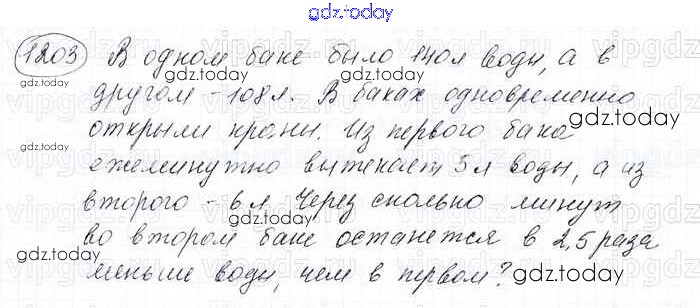 gdz.today
1203 В одном баке было 140 л воды, а в
gdz.today gdz.today
другом – 108 л. В баках одновременно
открыли краны. Из первого бака
gdz.today gdz.today
ежеминутно вытекает 5 л воды, а из
второго – 6 л. Через сколько минут
gdz.today gdz.today
во втором баке останется в 2,5 раза
gdz.today gdz.today
меньше воды, чем в первом?
gdz.today